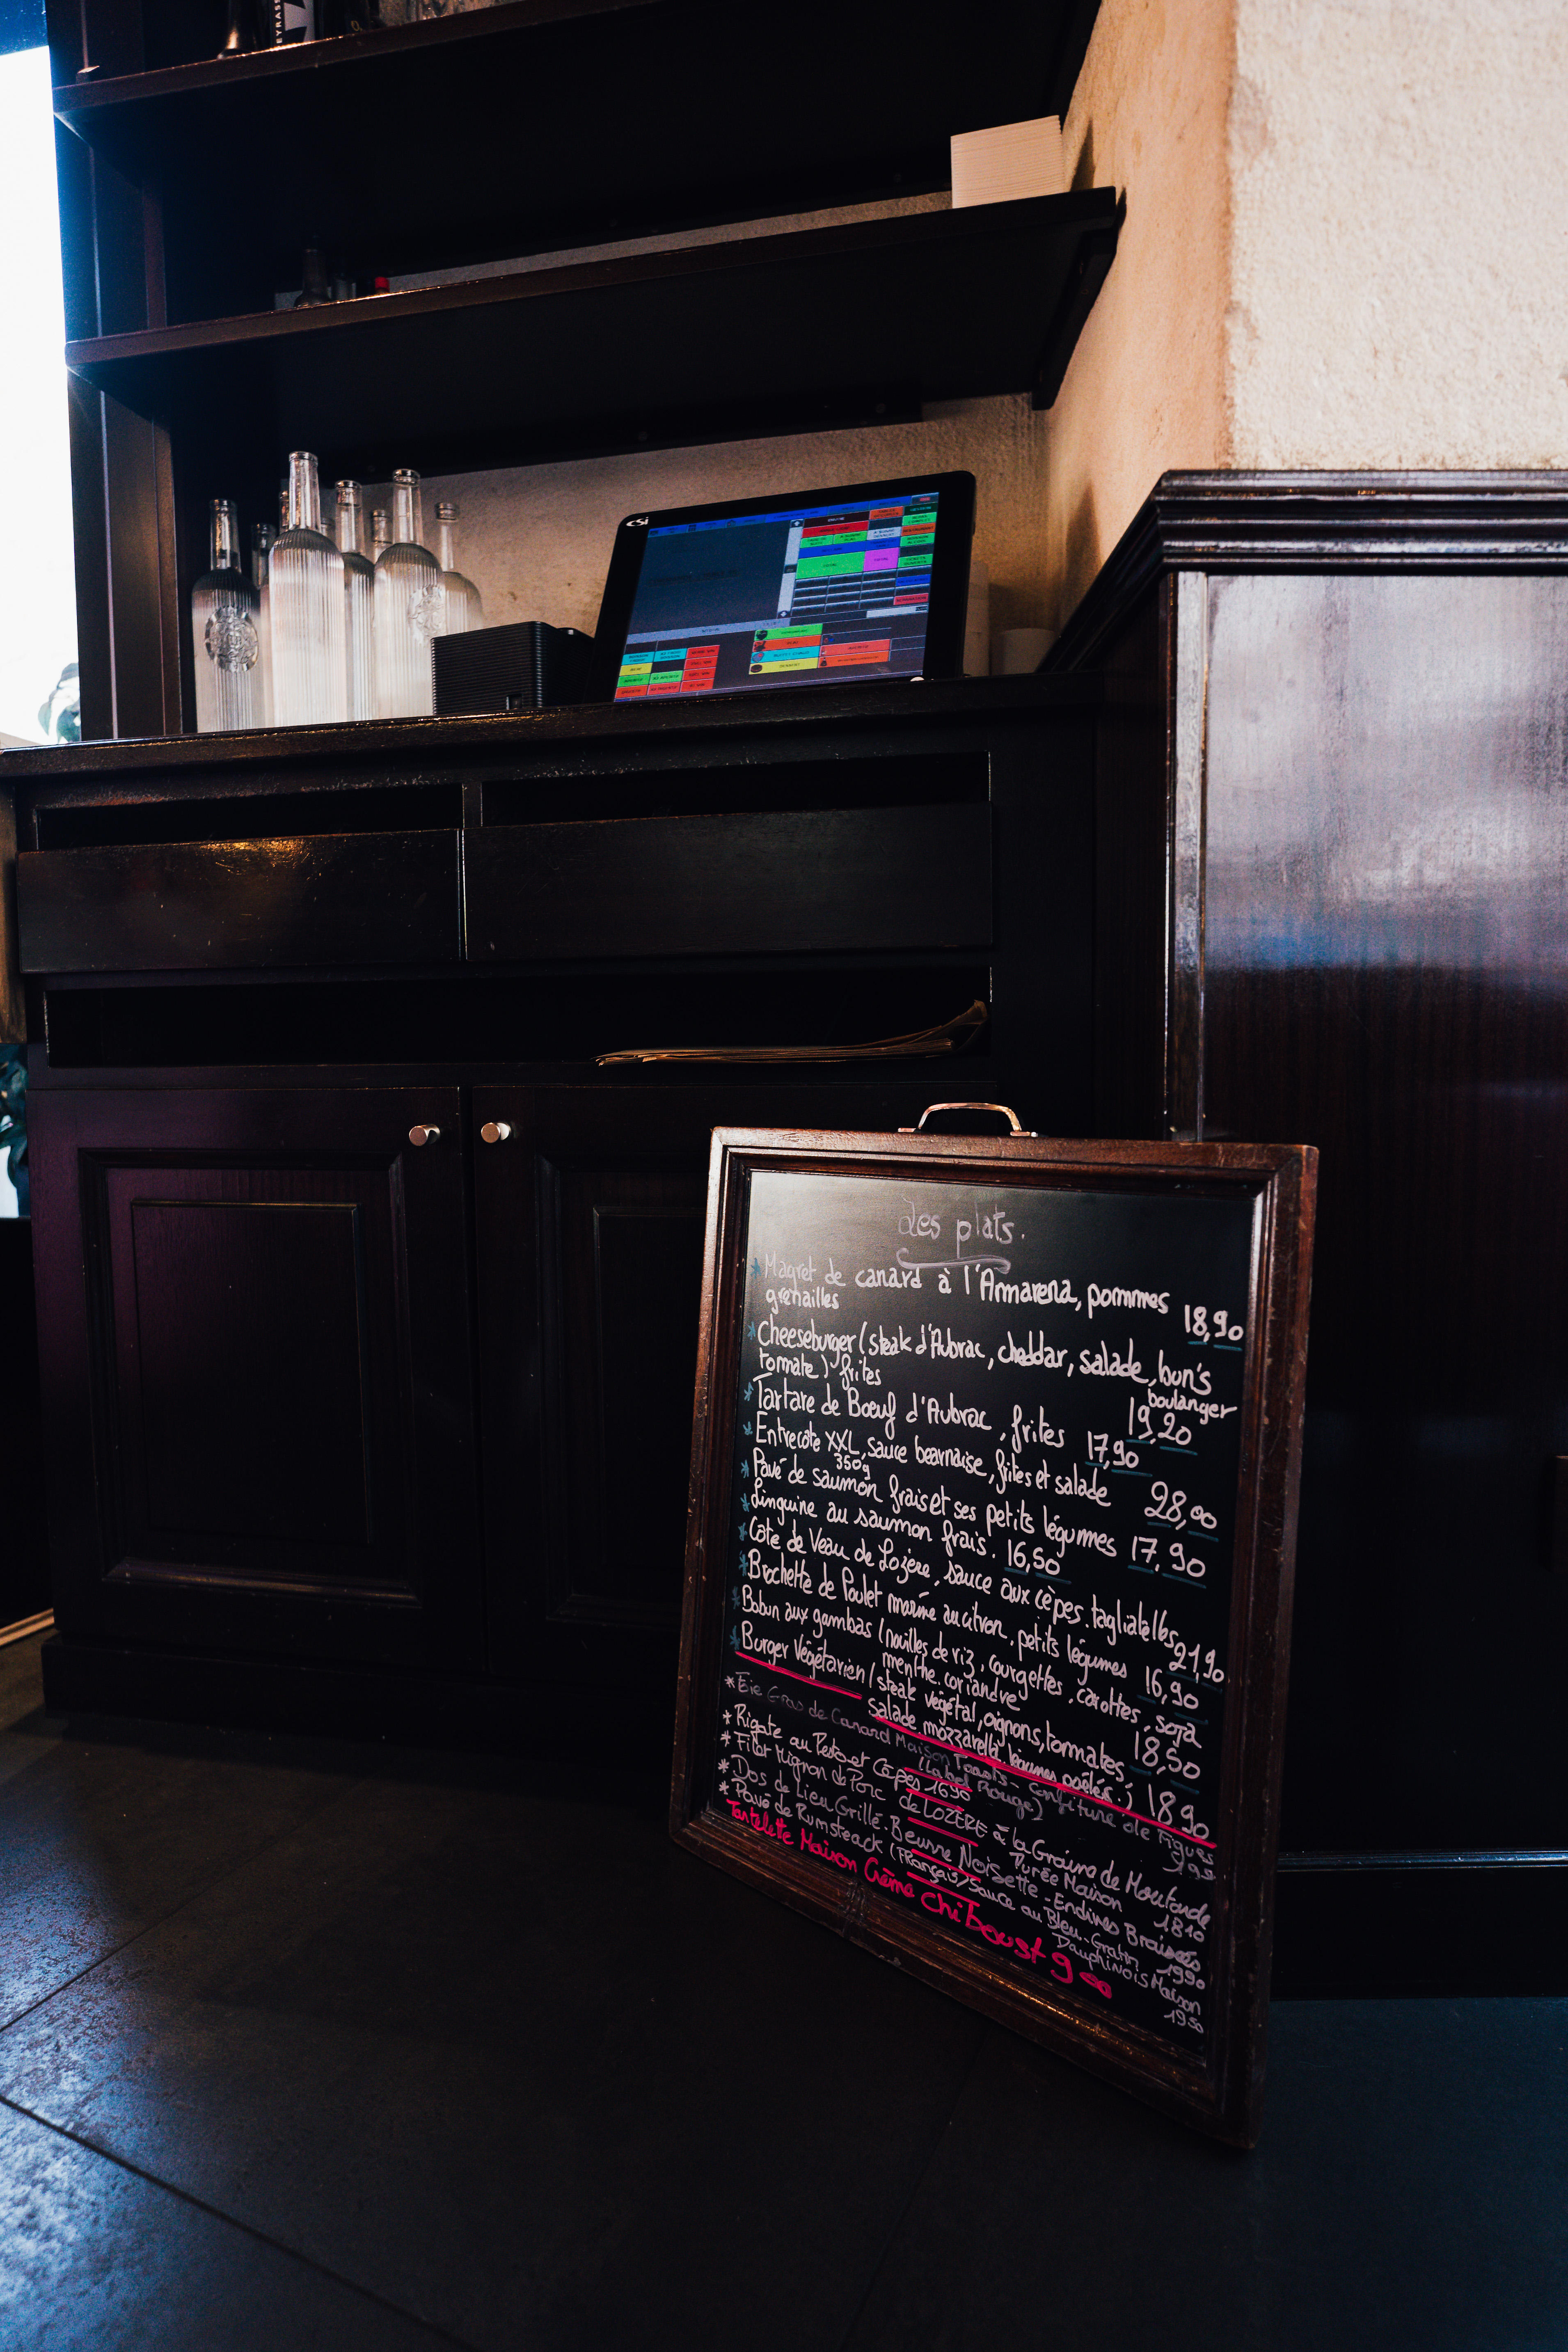 csi
Les plats.
* Magret de canard à l'Amarena, pommes
grenailles 18,90
* Cheeseburger (steak d'Aubrac, cheddar, salade, bun's
boulanger
tomate) frites 19,20
* Tartare de Boeuf d'Aubrac, frites 17,90
* Entrecôte XXL, sauce bearnaise, frites et salade 28,00
350g
* Pavé de saumon frais et ses petits légumes 17,90
* Linguine au saumon frais. 16,50
* Côte de Veau de Lozère, sauce aux cèpes. tagliatelles 21,90
* Brochette de Poulet mariné au citron, petits légumes 16,90
* Bobun aux gambas (nouilles de riz, courgettes, carottes, soja
menthe, coriandre 18,50
* Burger Végétarien (steak végétal, oignons, tommates,
salade mozzarella, légumes poêlés.) 18,90
* Foie Gras de Canard Maison Toasts - Confiture de Figues
(Label Rouge)
* Rigate au Pesto et Cèpes 1690
* Filet Mignon de Porc de LOZERE à la Graine de Moutarde
Purée Maison 1810
* Dos de Lieu Grillé - Beurre Noisette - Endives Braisées
1990
* Pavé de Rumsteack (Français) Sauce au Bleu - Gratin
Dauphinois Maison
1950
Tartelette Maison Crème Chiboust 9 00